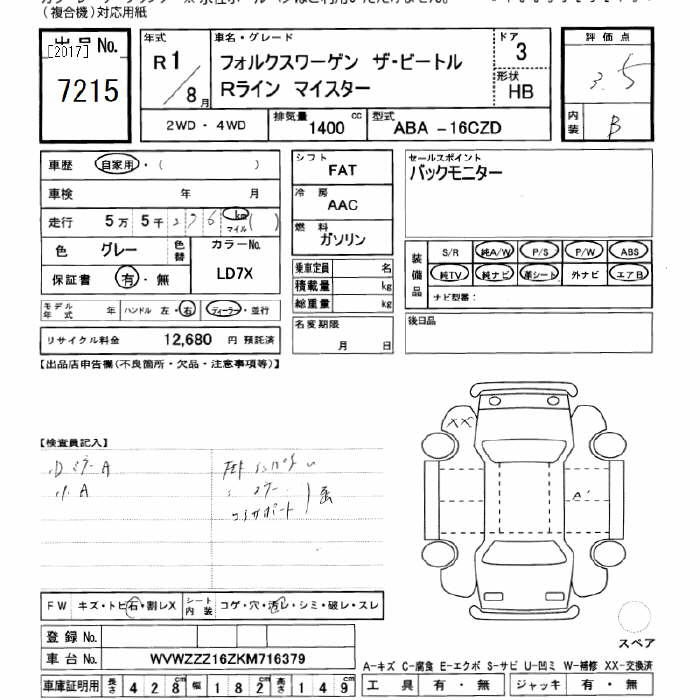 (複合機)対応用紙
出品No.
[2017]
7215
年式
R1
8月
車名・グレード
フォルクスワーゲン ザ・ビートル
Rライン マイスター
ドア
3
形状
HB
評価点
3.5
内装
B
2WD - 4WD
排気量 1400 cc
型式 ABA -16CZD
車歴 自家用・( )
車検 年 月
走行 5万 5千 276 km マイル ( )
色 グレー 色替
カラーNo. LD7X
保証書 有・無
モデル年式 年 ハンドル 左・右 ディーラー・並行
リサイクル料金 12,680 円 預託済
シフト
FAT
冷房
AAC
燃料
ガソリン
乗車定員 名
積載量 kg
総重量 kg
名変期限
月 日
セールスポイント
バックモニター
装備品
S/R 純A/W P/S P/W ABS
純TV 純ナビ 革シート 外ナビ エアB
ナビ型番:
後日品
【出品店申告欄(不良箇所・欠品・注意事項等)】
【検査員記入】
XX
A'
FW キズ・トビ石・割レX
シート内装 コゲ・穴・汚レ・シミ・破レ・スレ
登録No.
車台No. WVWZZZ16ZKM716379
車庫証明用 長さ 428cm 幅 182cm 高さ 149cm
スペア
A-キズ C-腐食 E-エクボ S-サビ U-凹ミ W-補修 XX-交換済
工具 有・無 ジャッキ 有・無